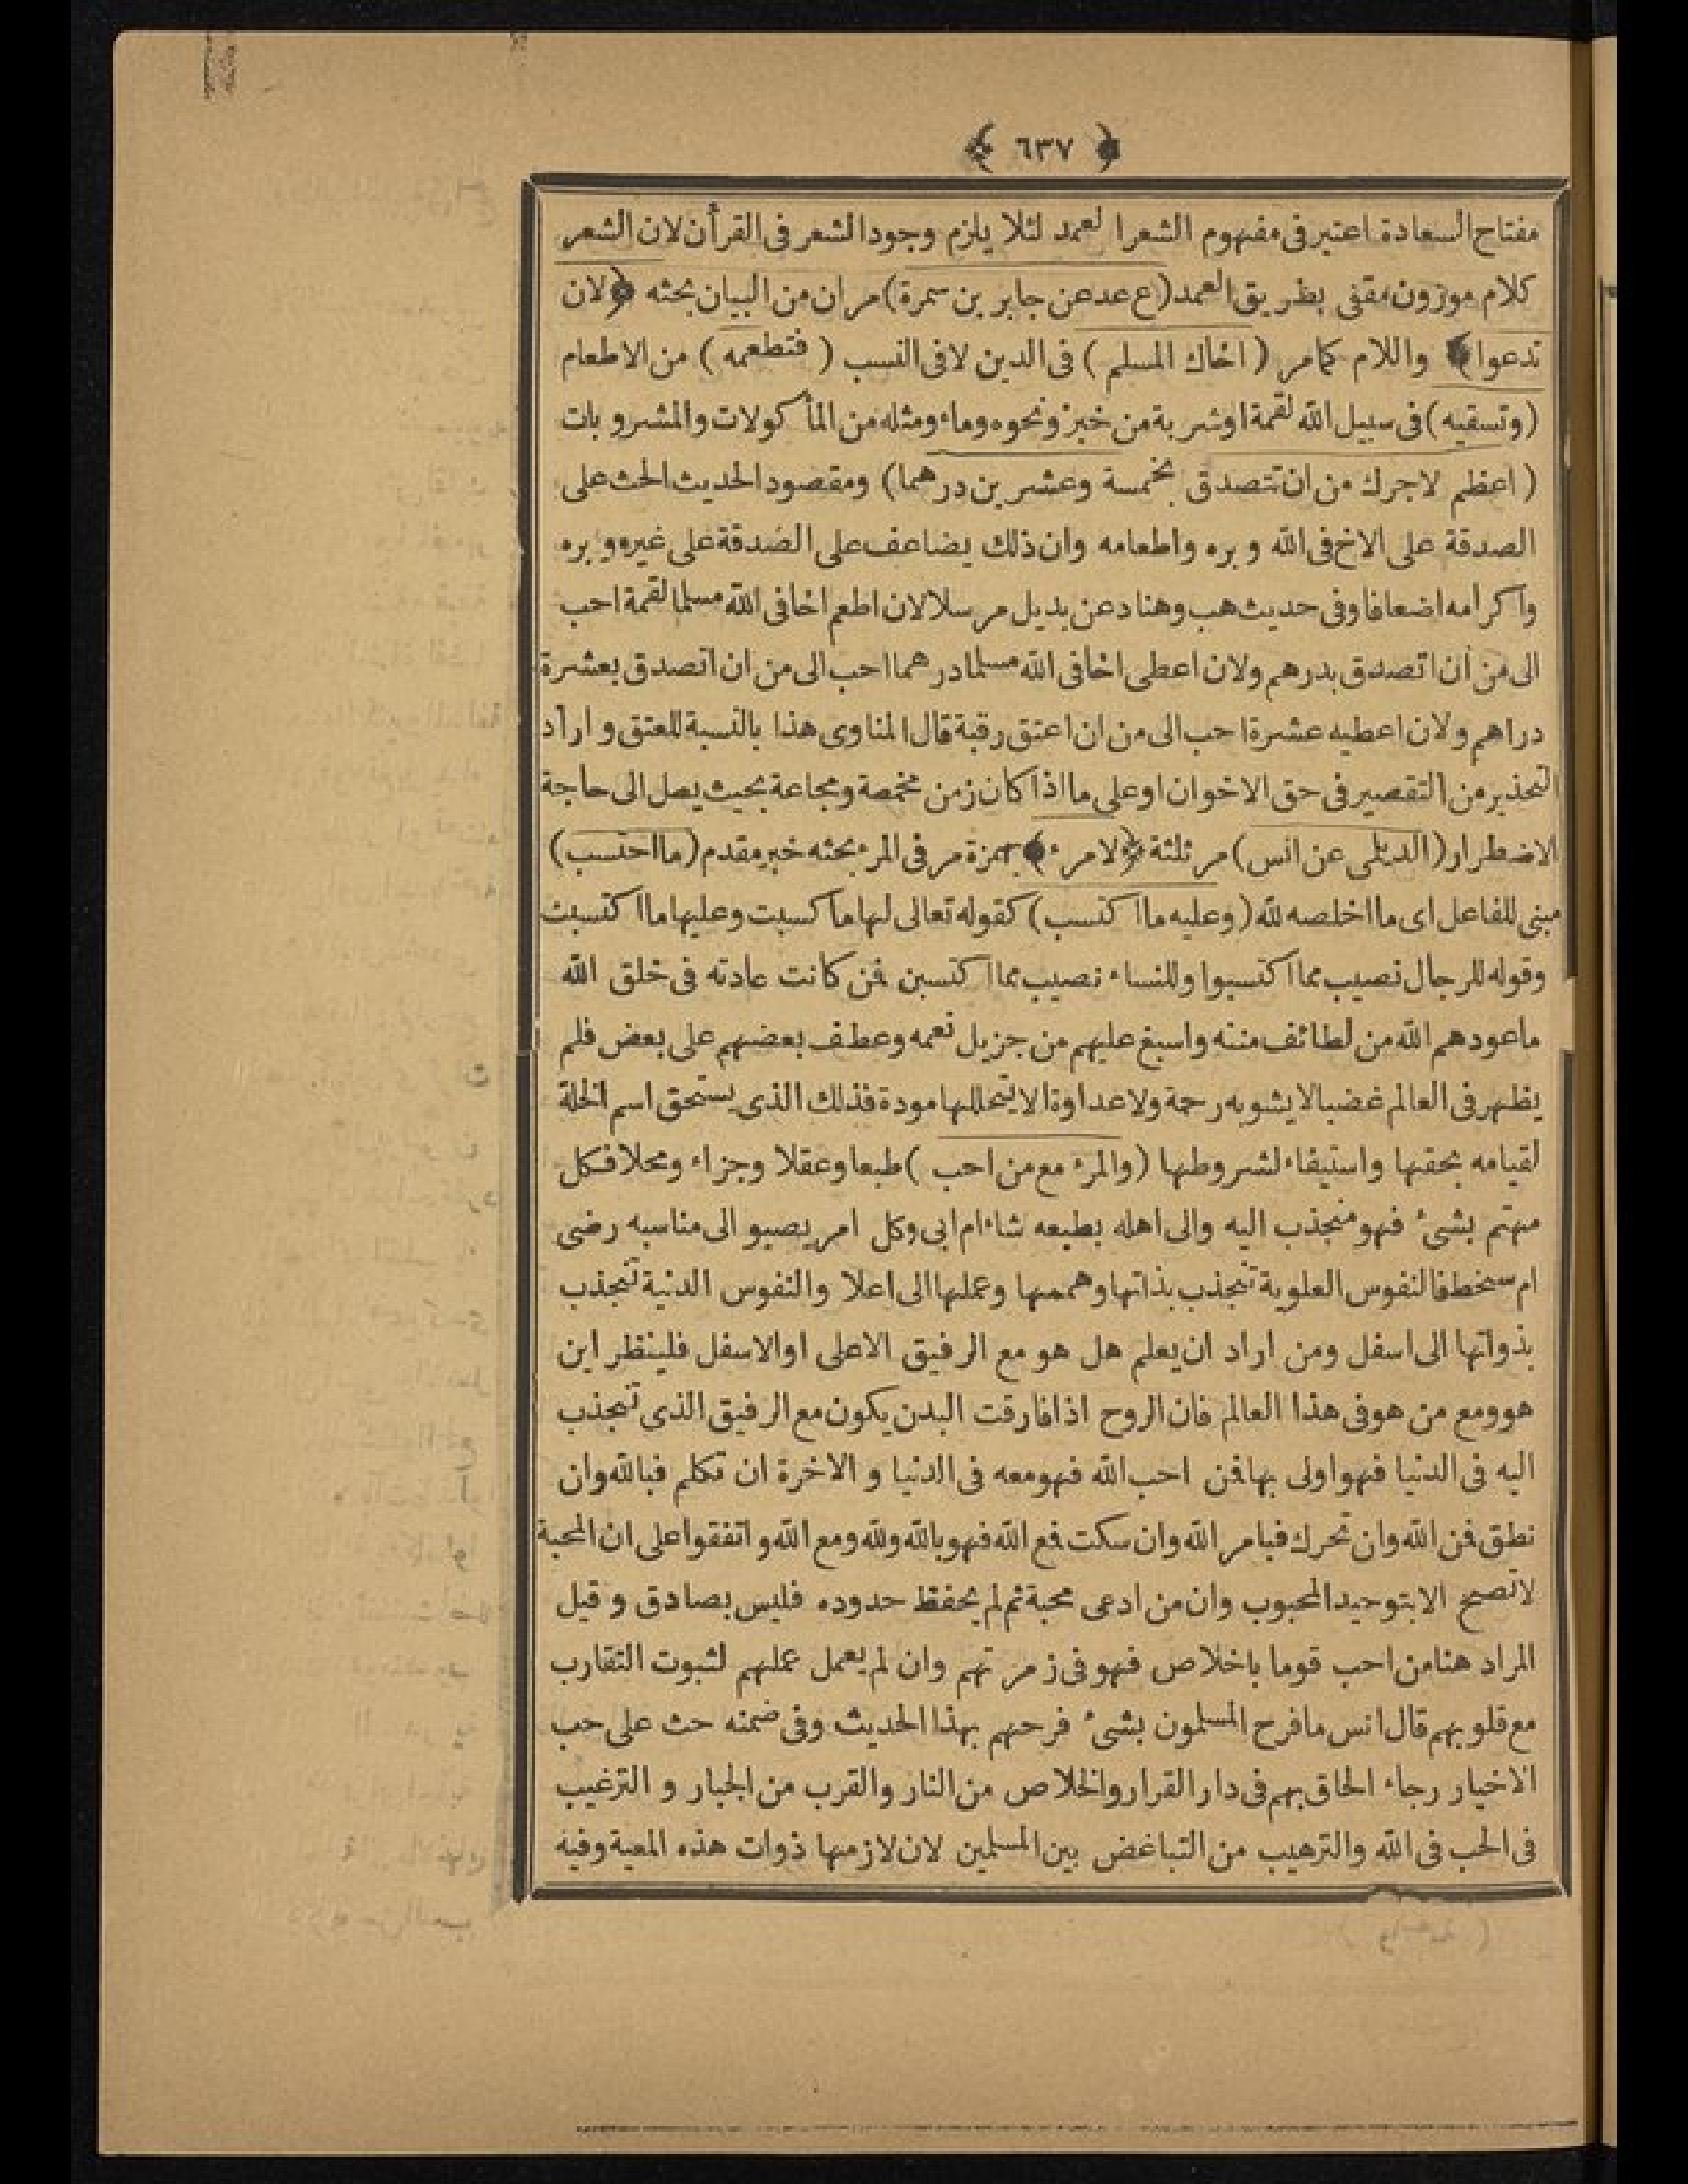 ﴿ ٦٣٧ ﴾
مفتاح السعادة اعتبر فى مفهوم الشعرا لعمد لئلا يلزم وجود الشعر فى القرأن لان الشعر
كلام موزون مقفى بطريق العمد (ع عد عن جابر بن سمرة) مر ان من البيان بحثه ﴿ لان
تدعوا ﴾ واللام كمامر ( اخاك المسلم ) فى الدين لا فى النسب ( فتطعمه ) من الاطعام
(وتسقيه) فى سبيل الله لقمة او شربة من خبز ونحوه وماء ومثله من المأكولات والمشروبات
( اعظم لاجرك من ان تتصدق بخمسة وعشرين درهما) ومقصود الحديث الحث على
الصدقة على الاخ فى الله وبره واطعامه وان ذلك يضاعف على الصدقة على غيره وبره
واكرامه اضعافا وفى حديث هب وهناد عن بديل مرسلا لان اطعم اخا فى الله مسلما لقمة احب
الى من أن اتصدق بدرهم ولان اعطى اخا فى الله مسلما درهما احب الى من ان اتصدق بعشرة
دراهم ولان اعطيه عشرة احب الى من ان اعتق رقبة قال المناوى هذا بالنسبة للعتق واراد
التحذير من التقصير فى حق الاخوان اوعلى ما اذا كان زمن مخمصة ومجاعة بحيث يصل الى حاجة
الاضطرار (الديلى عن انس) مر ثلثة ﴿ لامرء ﴾ بهمزة مر فى المرء بحثه خبر مقدم (ما احتسب)
مبنى للفاعل اى ما اخلصه لله (وعليه ما اكتسب) كقوله تعالى لها ما كسبت وعليها ما اكتسبت
وقوله للرجال نصيب مما اكتسبوا وللنساء نصيب مما اكتسبن فمن كانت عادته فى خلق الله
ماعودهم الله من لطائف مننه واسبغ عليهم من جزيل نعمه وعطف بعضهم على بعض فلم
يظهر فى العالم غضبا لا يشوبه رحمة ولا عداوة الا يتخللها مودة فذلك الذى يستحق اسم الخلة
لقيامه بحقها واستيفاء لشروطها (والمرء مع من احب ) طبعا وعقلا وجزاء ومحلا فكل
مهتم بشئ فهو منجذب اليه والى اهله بطبعه شاء ام ابى وكل امر يصبو الى مناسبه رضى
ام سخط فالنفوس العلوية تنجذب بذاتها وهممها وعملها الى اعلا والنفوس الدنية تنجذب
بذواتها الى اسفل ومن اراد ان يعلم هل هو مع الرفيق الاعلى او الاسفل فلينظر اين
هو ومع من هو فى هذا العالم فان الروح اذا فارقت البدن يكون مع الرفيق الذى تنجذب
اليه فى الدنيا فهو اولى بها فمن احب الله فهو معه فى الدنيا و الاخرة ان تكلم فبالله وان
نطق فمن الله وان تحرك فبامر الله وان سكت فمع الله فهو بالله ولله ومع الله واتفقوا على ان المحبة
لا تصح الا بتوحيد المحبوب وان من ادعى محبة ثم لم يحفظ حدوده فليس بصادق وقيل
المراد هنا من احب قوما باخلاص فهو فى زمرتهم وان لم يعمل عملهم لثبوت التقارب
مع قلوبهم قال انس مافرح المسلمون بشئ فرحهم بهذا الحديث وفى ضمنه حث على حب
الاخيار رجاء الحاق بهم فى دار القرار والخلاص من النار والقرب من الجبار و الترغيب
فى الحب فى الله والترهيب من التباغض بين المسلمين لان لازمها ذوات هذه المعية وفيه